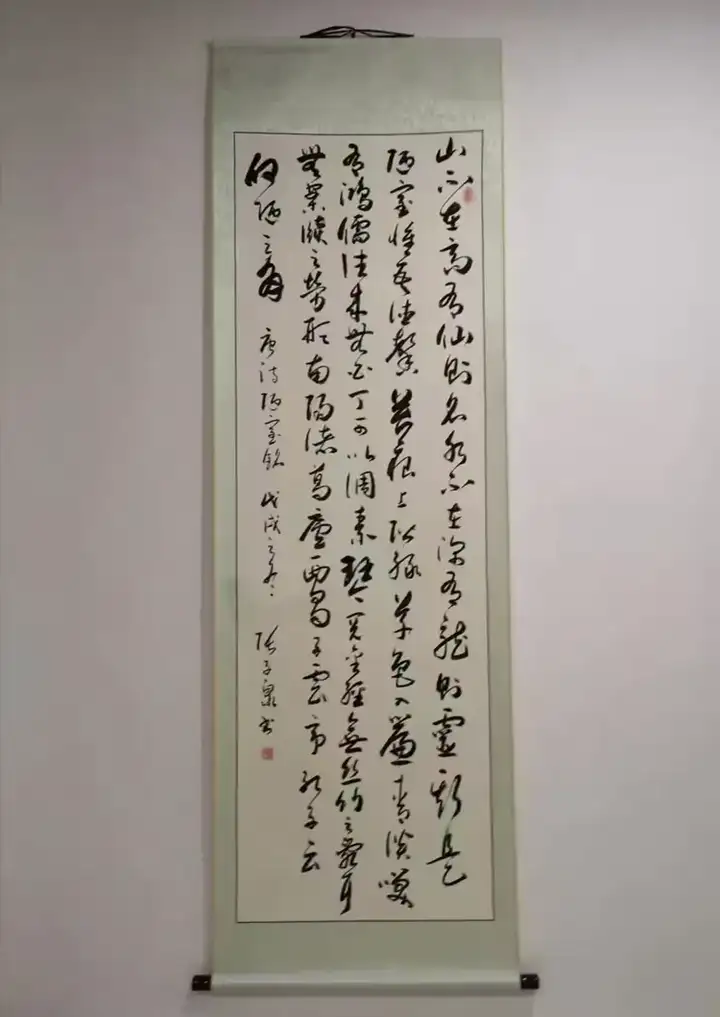 山不在高有仙則名水不在深有龍則靈斯是
陋室惟吾德馨苔痕上階綠草色入簾青談笑
有鴻儒往來無白丁可以調素琴閱金經無絲竹之亂耳
無案牘之勞形南陽諸葛廬西蜀子雲亭孔子云
何陋之有 唐詩陋室銘 戊戌之冬 張子泉書